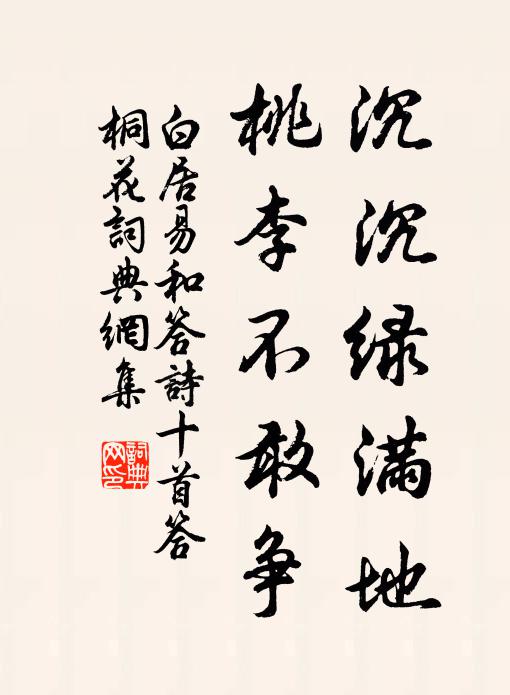 沉沉绿满地
桃李不敢争
白居易和答詩十首答
桐花詞典網集
詞典
网印